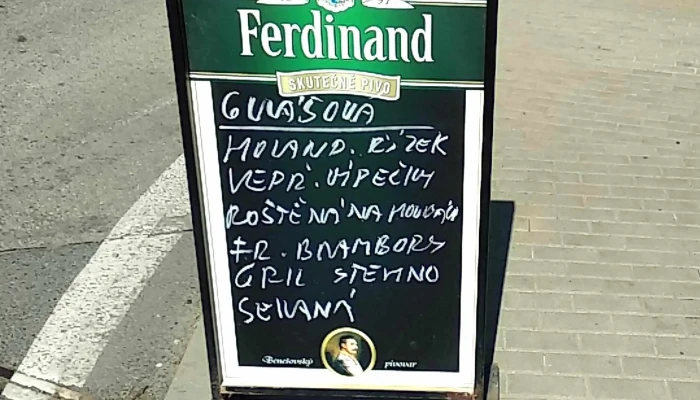 Ferdinand
SKUTEČNÉ PIVO
GULÁŠOVA
HOLAND. ŘÍZEK
VEPŘ. VÝPEČKY
ROŠTĚNÁ NA HOUBÁCH
FR. BRAMBORY
GRIL STEHNO
SEKANÁ
Benešovský pivovar